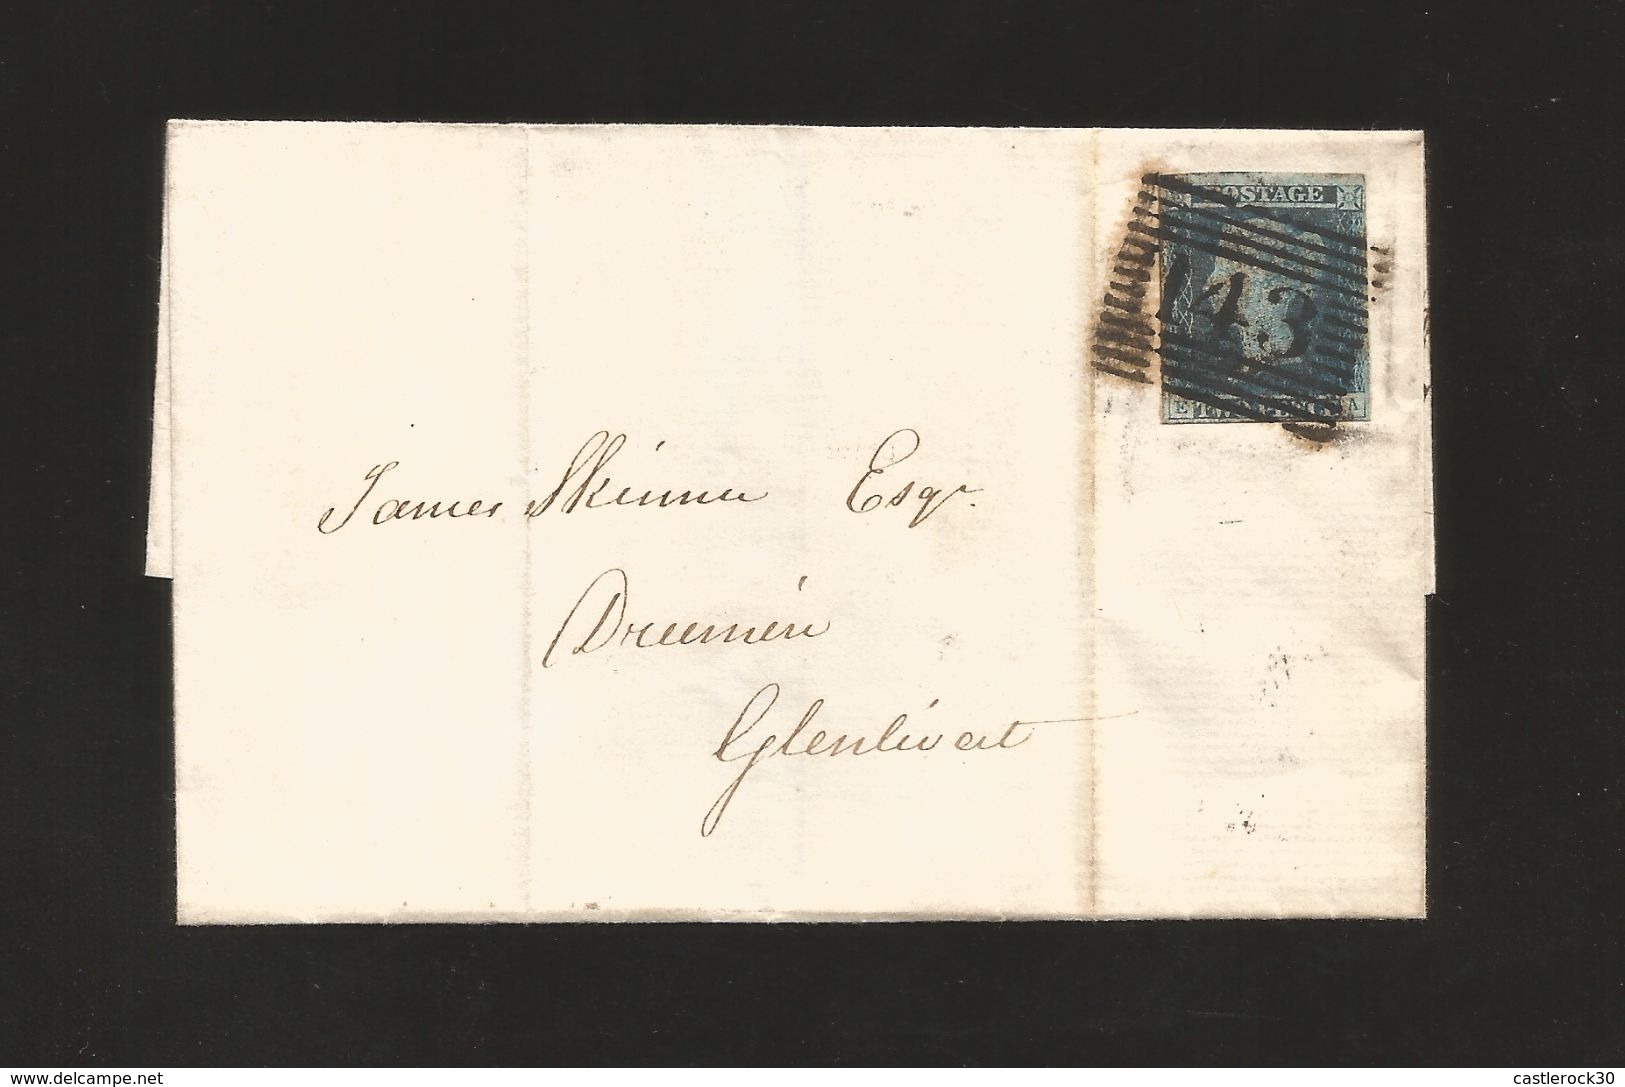 POSTAGE
143
E TWO PENCE A
James Skinner Esqr.
Drumin
Glenlivat
www.delcampe.net
castlerock30